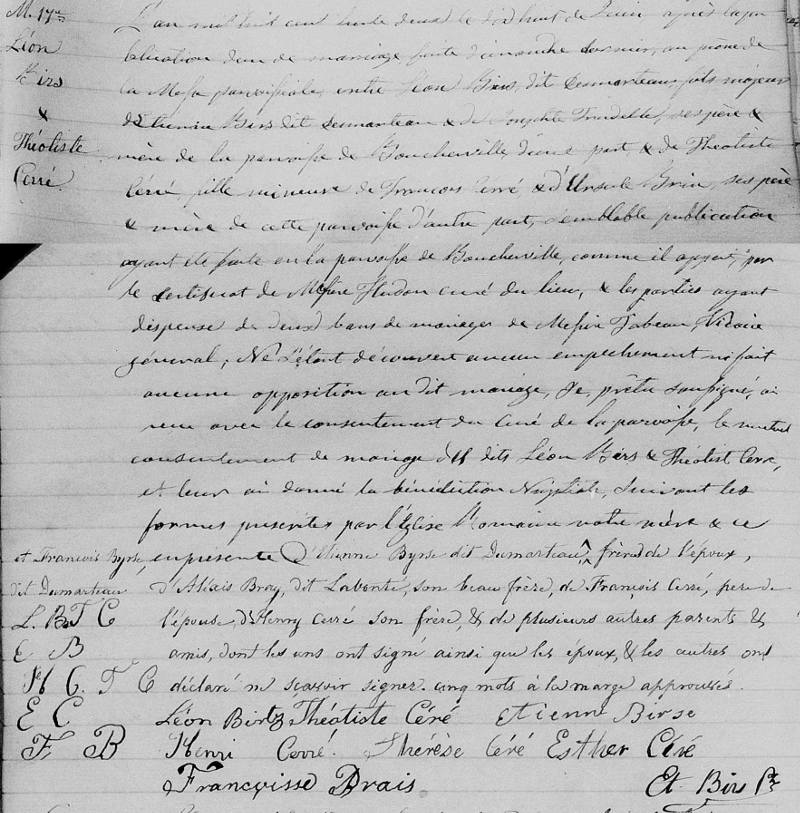 M. 17e
Léon
Birs
&
Théotiste
Cerré.
L'an mil huit cent trente deux le dix huit de Juin après la pu
blication d'un de mariage faite dimanche dernier, au prône de
la Messe paroissiale, entre Léon Birs, dit Desmarteau, fils majeur
d'Etienne Birs dit Desmarteau & de Josephte Trudelle, ses père &
mère de la paroisse de Boucherville d'une part, & de Théotiste
Cérré fille mineure de François Cérré & d'Ursule Brin, ses père
& mère de cette paroisse d'autre part, semblable publication
ayant été faite en la paroisse de Boucherville, comme il appert, par
le certificat de Messire Hudon curé du lieu, & les parties ayant
dispense de deux bans de mariage de Messire Tabeau, Vicaire
général; Ne s'étant découvert aucun empêchement ni fait
aucune opposition au dit mariage, Je, prêtre soussigné, ai
recu avec le consentement du Curé de la paroisse, le mutuel
consentement de mariage des dits Léon Birs & Théotist Cerré,
et leur ai donné la bénédiction Nuptiale, suivant les
formes prescrites par l'Église Romaine notre mère & ce
et Francois Byrse, en présence d'Etienne Byrse dit Dumarteau, ^ frères de l'époux,
dit Dumarteau d'Alexis Bray, dit Labonté, son beau frère, de François Cerré, père de
L. B. T C l'épouse, d'Henry Cerré son frère, & de plusieurs autres parents &
E B amis, dont les uns ont signé ainsi que les époux, & les autres ont
H C. T C déclaré ne scavoir signer. cinq mots à la marge approuvés.
E C Léon Birtz Théotiste Céré Etienne Birse
F B Henri Cerré. Thérèse Céré Esther Céré
Françoisse Brais Et. Birs Ptre